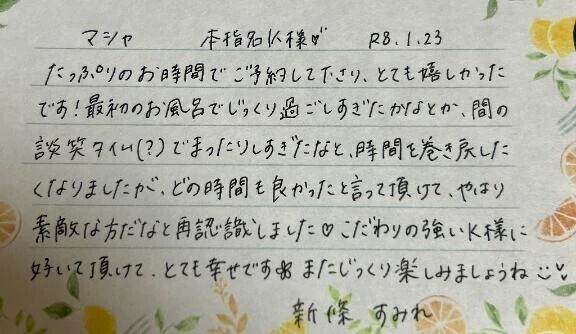 マシャ 本指名K様♡ R8.1.23
たっぷりのお時間でご予約して下さり、とても嬉しかった
です!最初のお風呂でじっくり過ごしすぎたかなとか、間の
談笑タイム(?)でまったりしすぎたなと、時間を巻き戻した
くなりましたが、どの時間も良かったと言って頂けて、やはり
素敵な方だなと再認識しました♡こだわりの強いK様に
好いて頂けて、とても幸せです またじっくり楽しみましょうね
新條 すみれ